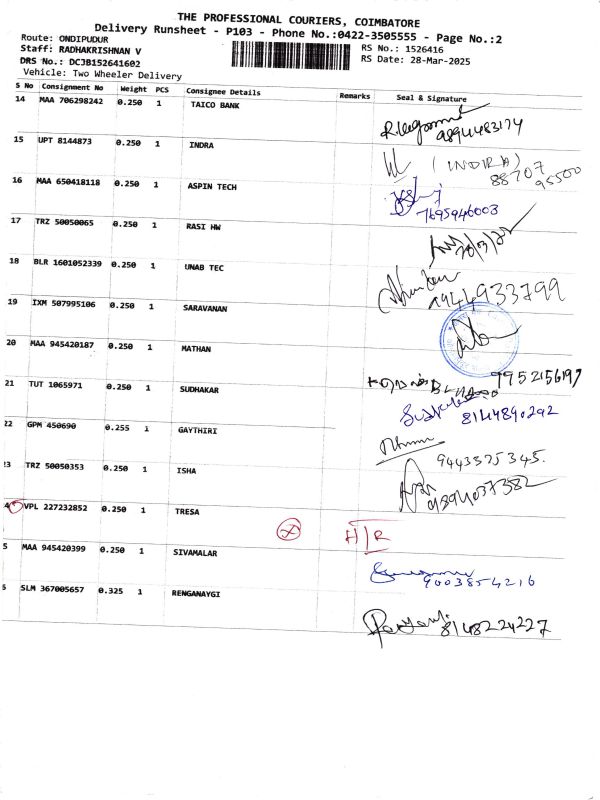 THE PROFESSIONAL COURIERS, COIMBATORE
Delivery Runsheet - P103 - Phone No.:0422-3505555 - Page No.:2
Route: ONDIPUDUR
RS No.: 1526416
Staff: RADHAKRISHNAN V
RS Date: 28-Mar-2025
DRS No.: DCJB152641602
Vehicle: Two Wheeler Delivery
S No Consignment No Weight PCS Consignee Details Remarks Seal & Signature
14 MAA 706298242 0.250 1 TAICO BANK
9894483174
15 UPT 8144873 0.250 1 INDRA
(INDIRA) 88707
95500
16 MAA 650418118 0.250 1 ASPIN TECH
7695946003
17 TRZ 50050065 0.250 1 RASI HW
28/3/25
18 BLR 1601052339 0.250 1 UNAB TEC
9944933799
19 IXM 507995106 0.250 1 SARAVANAN
20 MAA 945420187 0.250 1 MATHAN
9952156197
21 TUT 1065971 0.250 1 SUDHAKAR
8144890292
22 GPM 450690 0.255 1 GAYTHIRI
9443375345.
23 TRZ 50050353 0.250 1 ISHA
9894037382
4 VPL 227232852 0.250 1 TRESA H/R
5 MAA 945420399 0.250 1 SIVAMALAR
9003854216
6 SLM 367005657 0.325 1 RENGANAYGI
8148224227